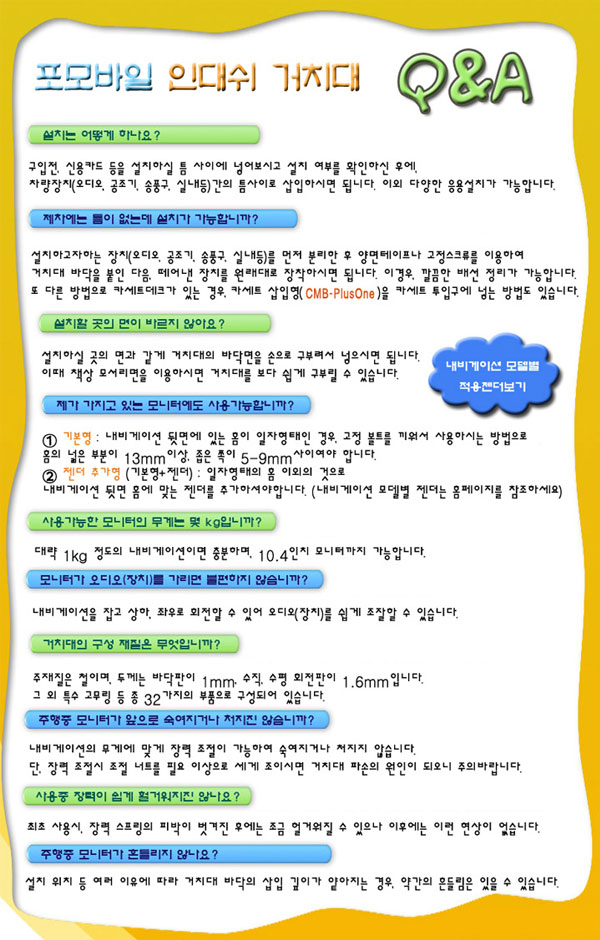 포모바일 인대쉬 거치대 Q&A
설치는 어떻게 하나요?
구입전, 신용카드 등을 설치하실 틈 사이에 넣어보시고 설치 여부를 확인하신 후에,
차량장치(오디오, 공조기, 송풍구, 실내등)간의 틈사이로 삽입하시면 됩니다. 이외 다양한 응용설치가 가능합니다.
제차에는 틈이 없는데 설치가 가능합니까?
설치하고자하는 장치(오디오, 공조기, 송풍구, 실내등)를 먼저 분리한 후 양면테이프나 고정스크류를 이용하여
거치대 바닥을 붙인 다음, 떼어낸 장치를 원래대로 장착하시면 됩니다. 이경우, 깔끔한 배선 정리가 가능합니다.
또 다른 방법으로 카세트데크가 있는 경우, 카세트 삽입형(CMB-PlusOne)을 카세트 투입구에 넣는 방법도 있습니다.
설치할 곳의 면이 바르지 않아요?
설치하실 곳의 면과 같게 거치대의 바닥면을 손으로 구부려서 넣으시면 됩니다.
이때 책상 모서리면을 이용하시면 거치대를 보다 쉽게 구부릴 수 있습니다.
내비게이션 모델별
적용젠더보기
제가 가지고 있는 모니터에도 사용가능합니까?
① 기본형 : 내비게이션 뒷면에 있는 홈이 일자형태인 경우, 고정 볼트를 끼워서 사용하시는 방법으로
홈의 넓은 부분이 13mm이상, 좁은 쪽이 5-9mm사이여야 합니다.
② 젠더 추가형 (기본형+젠더) : 일자형태의 홈 이외의 것으로
내비게이션 뒷면 홈에 맞는 젠더를 추가하셔야합니다. (내비게이션 모델별 젠더는 홈페이지를 참조하세요)
사용가능한 모니터의 무게는 몇 kg입니까?
대략 1kg 정도의 내비게이션이면 충분하며, 10.4인치 모니터까지 가능합니다.
모니터가 오디오(장치)를 가리면 불편하지 않습니까?
내비게이션을 잡고 상하, 좌우로 회전할 수 있어 오디오(장치)를 쉽게 조작할 수 있습니다.
거치대의 구성 재질은 무엇입니까?
주재질은 철이며, 두께는 바닥판이 1mm, 수직, 수평 회전판이 1.6mm입니다.
그 외 특수 고무링 등 총 32가지의 부품으로 구성되어 있습니다.
주행중 모니터가 앞으로 숙여지거나 처지진 않습니까?
내비게이션의 무게에 맞게 장력 조절이 가능하여 숙여지거나 처지지 않습니다.
단, 장력 조절시 조절 너트를 필요 이상으로 세게 조이시면 거치대 파손의 원인이 되오니 주의바랍니다.
사용중 장력이 쉽게 헐거워지진 않나요?
최초 사용시, 장력 스프링의 피막이 벗겨진 후에는 조금 헐거워질 수 있으나 이후에는 이런 현상이 없습니다.
주행중 모니터가 흔들리지 않나요?
설치 위치 등 여러 이유에 따라 거치대 바닥의 삽입 깊이가 얕아지는 경우, 약간의 흔들림은 있을 수 있습니다.